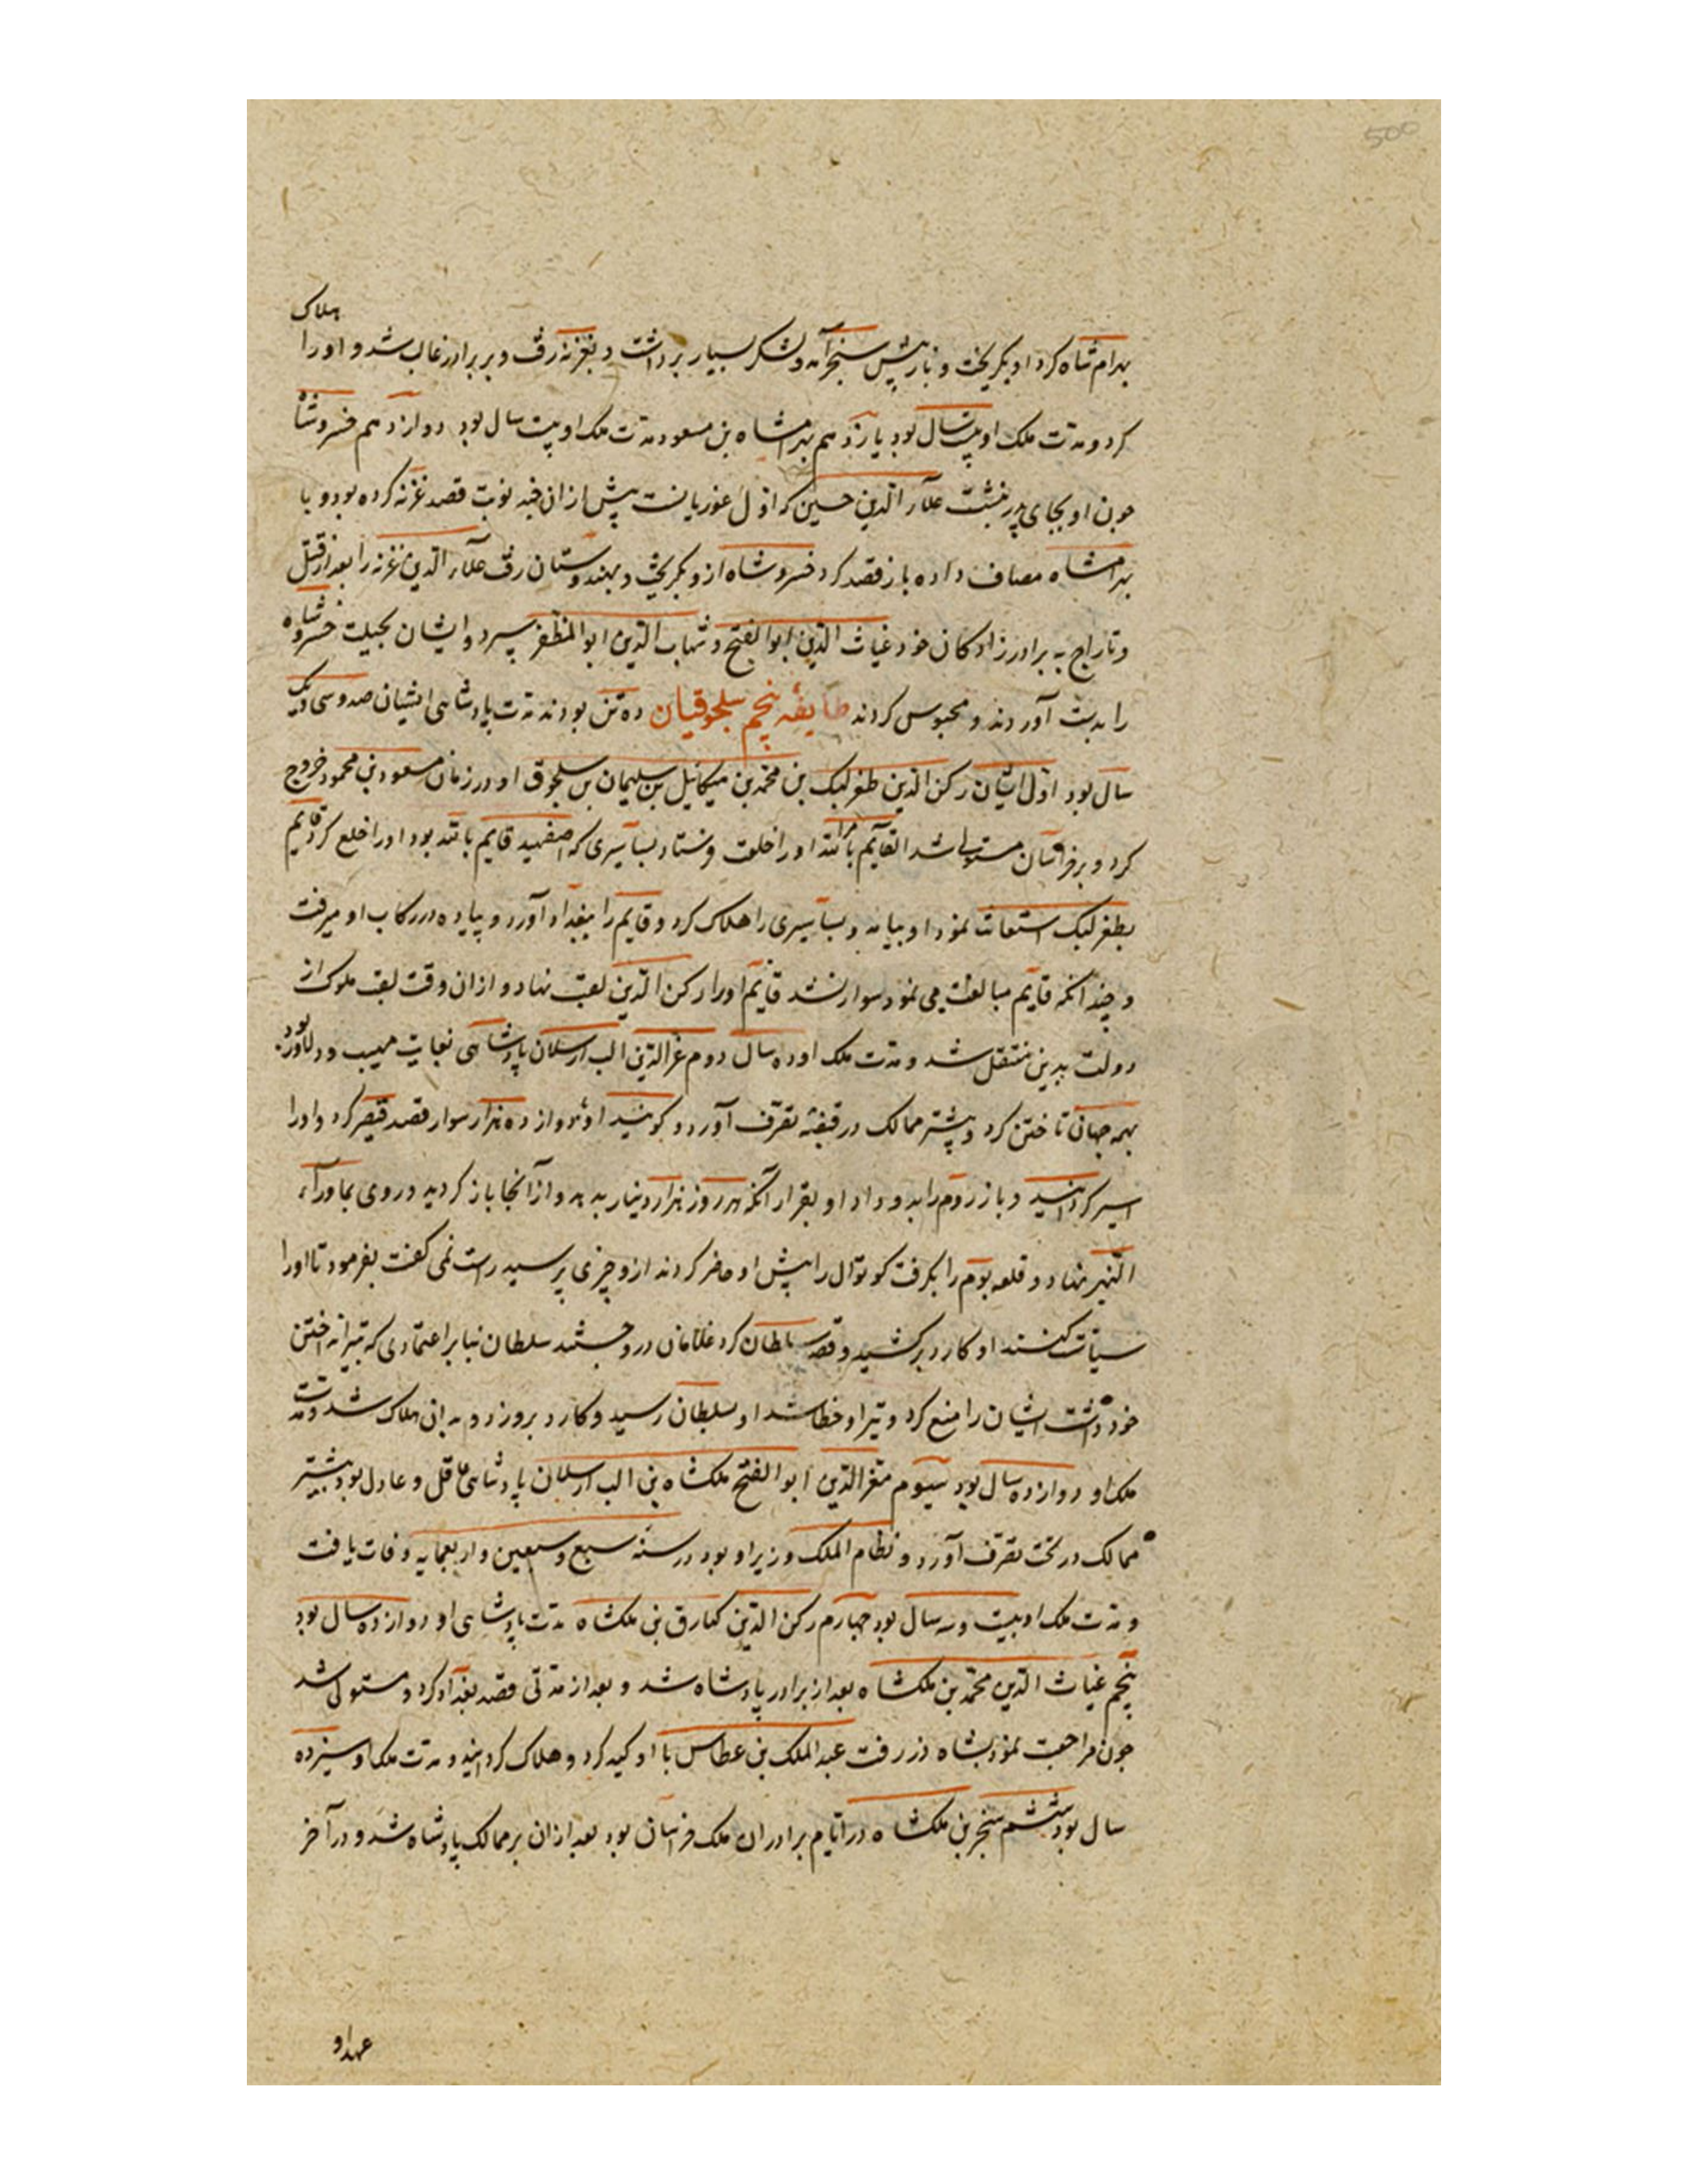 500
بهرام شاه کرد او بگریخت و باز پیش سنجر آمد و لشکر بسیار برداشت و بغزنه رفت و بر برادر غالب شد و او را هلاک
کرد و مدت ملک او بیست سال بود یازدهم بهرامشاه بن مسعود مدت ملک او بیست سال بود دوازدهم خسروشاه
چون او بجای پدر بنشست علاء الدین حسین که اول غوریانست پیش ازان چند نوبت قصد غزنه کرده بود و با
بهرامشاه مصاف داده باز قصد کرد خسروشاه ازو بگریخت و بهندوستان رفت علاء الدین غزنه را بعد از قتل
و تاراج به برادرزادکان خود غیاث الدین ابوالفتح و شهاب الدین ابوالمظفر سپرد و ایشان بحیلت خسروشاه
را بدست آوردند و محبوس کردند طایفه پنجم سلجوقیان ده تن بودند مدت پادشاهی ایشان صد و سی و یک
سال بود اول ایشان رکن الدین طغرلبک بن محمد بن میکائیل بن سلیمان بن سلجوق او در زمان مسعود بن محمود خروج
کرد و بر خراسان مستولی شد القایم بامر الله او را خلعت فرستاد بساسیری که اصفهبد قایم بالله بود او را خلع کرد قایم
بطغرلبک استعانت نمود او بیامد و بساسیری را هلاک کرد و قایم را ببغداد آورد و پیاده در رکاب او میرفت
و چندانکه قایم مبالغت می نمود سوار نشد قایم او را رکن الدین لقب نهاد و ازان وقت لقب ملوک از
دولت بدین منتقل شد و مدت ملک او ده سال دوم عز الدین الب ارسلان پادشاهی بغایت مهیب و دلاور بود
بهمه جهان تاختن کرد و بیشتر ممالک در قبضه تصرف آورد و کویند او با دوازده هزار سوار قصد قیصر کرد و او را
اسیر کردانید و باز روم را بدو داد او بقرار آنکه هر روز هزار دینار بدهد و از آنجا باز کردید و روی بماوراء
النهر نهاد و قلعه بوم را بکرفت کوتوال را پیش او حاضر کردند ازو چیزی پرسید راست نمی کفت بفرمود تا او را
سیاست کنند او کارد برکشید و قصد سلطان کرد غلامان درو جستند سلطان بنا بر اعتمادی که بتیر انداختن
خود داشت ایشان را منع کرد و تیر او خطا شد او بسلطان رسید و کارد برو زد و بدان هلاک شد و مدت
ملک او دوازده سال بود سیوم معز الدین ابوالفتح ملکشاه بن الب ارسلان پادشاهی عاقل و عادل بود بیشتر
ممالک در تحت تصرف آورد و نظام الملک وزیر او بود در سنه سبع و سبعین و اربعمایه وفات یافت
و مدت ملک او بیست و سه سال بود چهارم رکن الدین کیارق بن ملکشاه مدت پادشاهی او دوازده سال بود
پنجم غیاث الدین محمد بن ملکشاه بعد از برادر پادشاه شد و بعد از مدتی قصد بغداد کرد و مستولی شد
چون مراجعت نمود بشاه دز رفت عبد الملک بن عطاس با او کید کرد و هلاک کردانید و مدت ملک او سیزده
سال بود ششم سنجر بن ملکشاه در ایام برادران ملک خراسان بود بعد ازان بر ممالک پادشاه شد و در آخر
عهد او